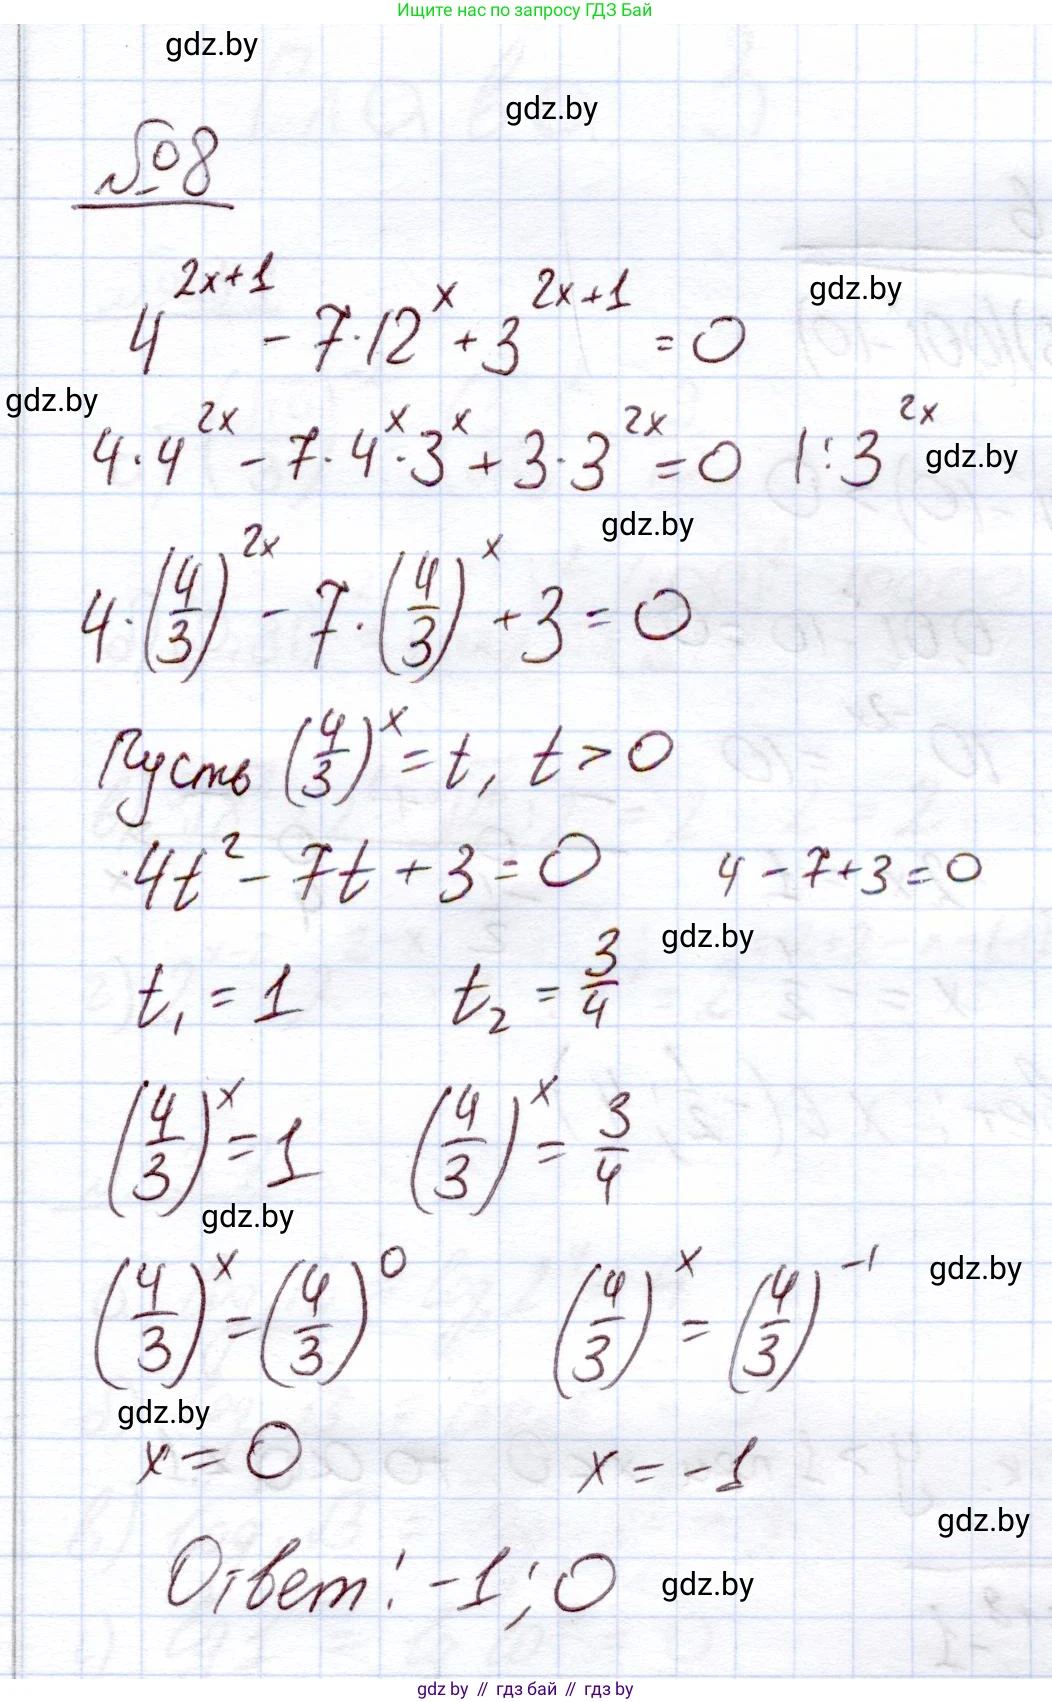 Ищите нас по запросу ГДЗ Бай
gdz.by
gdz.by
№8
4^(2x+1) - 7·12^x + 3^(2x+1) = 0
gdz.by
gdz.by
4·4^(2x) - 7·4^x·3^x + 3·3^(2x) = 0 |:3^(2x)
gdz.by
gdz.by
4·(4/3)^(2x) - 7·(4/3)^x + 3 = 0
Пусть (4/3)^x = t, t > 0
4t² - 7t + 3 = 0 4 - 7 + 3 = 0
gdz.by
t₁ = 1 t₂ = 3/4
(4/3)^x = 1 (4/3)^x = 3/4
gdz.by
gdz.by
(4/3)^x = (4/3)^0 (4/3)^x = (4/3)^(-1)
gdz.by
x = 0 x = -1
gdz.by
Ответ: -1; 0
gdz.by
gdz by // гдз бай // гдз by